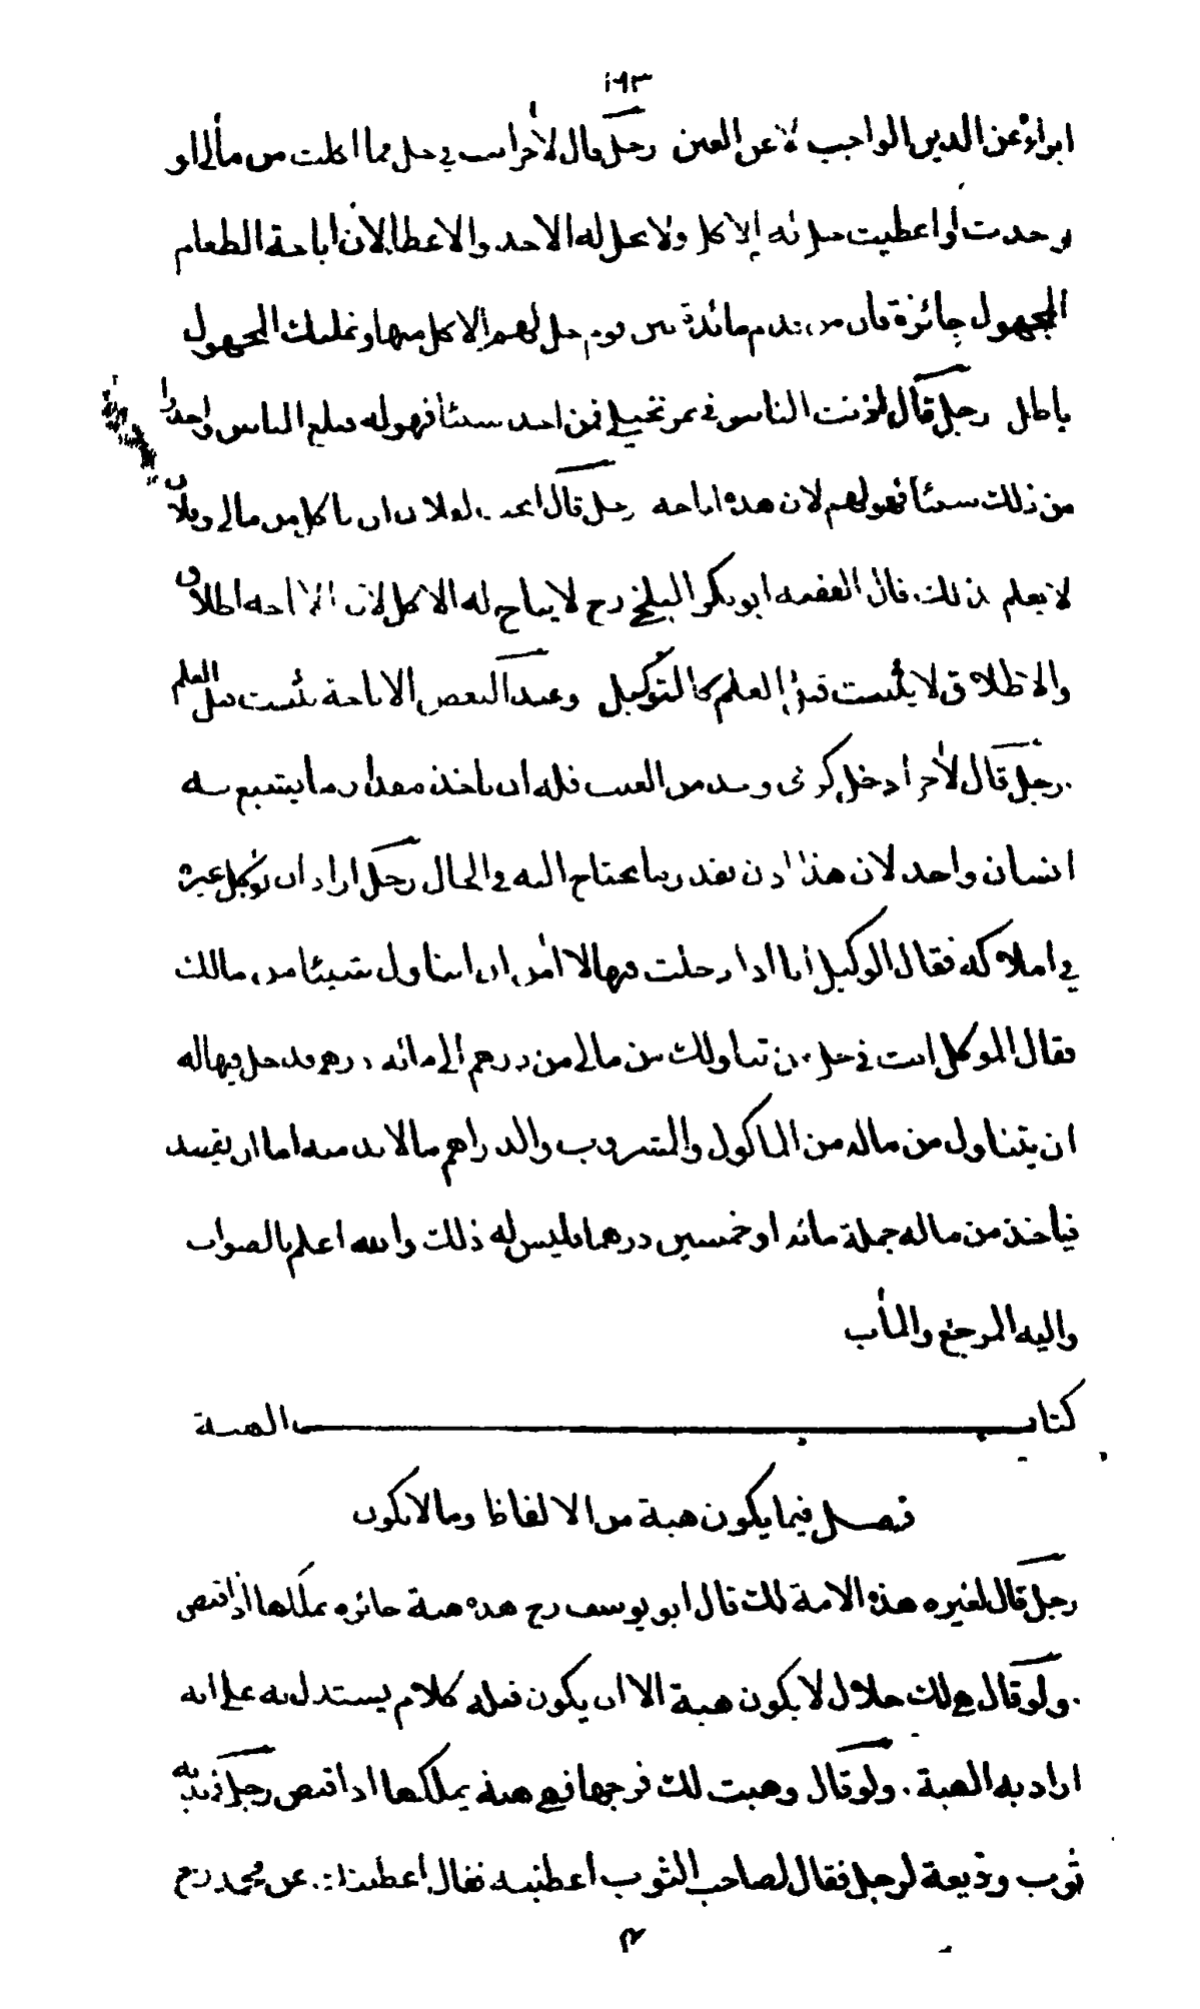 ١٩٣
ابراء عن الدين الواجب لا عن العين رجل قال لآخر انت في حل مما اكلت من مالي او
اخذت او اعطيت حل له الاكل ولا يحل له الاخذ والاعطا لان اباحة الطعام
المجهول جائزة فان من قدم مائدة بين قوم حل لهم الاكل منها وتمليك المجهول
باطل رجل قال اذنت الناس في تمر نخيلي فمن اخذ شيئا فهو له فبلغ الناس واخذوا
من ذلك شيئا فهو لهم لان هذه اباحه رجل قال ابحت لفلان ان ياكل من مالي وفلان
لا يعلم بذلك قال الفقيه ابو بكر البلخي رح لا يباح له الاكل لان الاباحه اطلاق
والاطلاق لا يثبت قبل العلم كالتوكيل وعند البعض الاباحة تثبت قبل العلم
رجل قال لآخر ادخل كرمي وخذ من العنب فله ان ياخذ مقدار ما يشبع به
انسان واحد لان هذا اذن بقدر ما يحتاج اليه في الحال رجل اراد ان يوكل غيره
في املاكه فقال الوكيل انا اذا دخلت فيها لا آمن ان اتناول شيئا من مالك
فقال الموكل انت في حل من تناولك من مالي من درهم الى مائه درهم فدخل فيها له
ان يتناول من ماله من الماكول والمشروب والدراهم ما لا بد منه اما ان يقصد
فياخذ من ماله جملة مائه او خمسين درهما فليس له ذلك والله اعلم بالصواب
واليه المرجع والمآب
كتاب الهبة
فصل فيما يكون هبة من الالفاظ وما لا يكون
رجل قال لغيره هذه الامة لك قال ابو يوسف رح هذه هبة جائزه يملكها اذا قبض
ولو قال هي لك حلال لا يكون هبة الا ان يكون قبله كلام يستدل به على انه
اراد به الهبة ولو قال وهبت لك فرجها فهي هبة يملكها اذا قبض رجل في يديه
ثوب وديعة لرجل فقال لصاحب الثوب اعطنيه فقال اعطيتك عن محمد رح